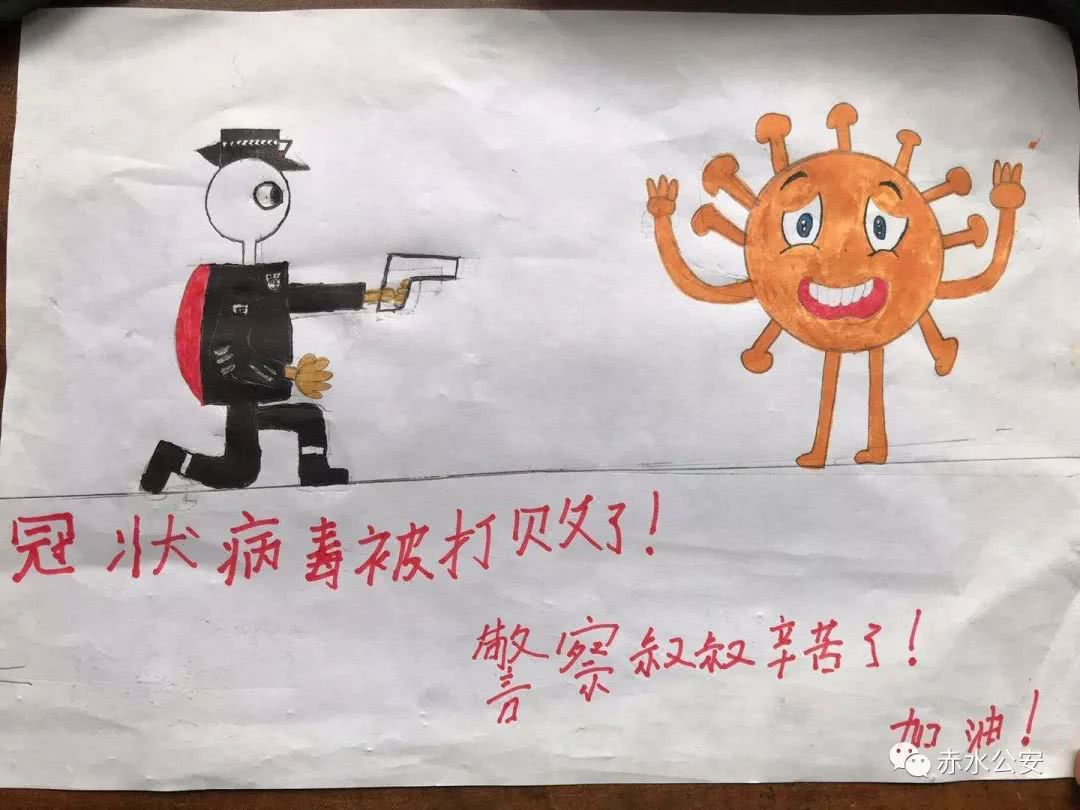 冠状病毒被打败了！
警察叔叔辛苦了！
加油！
赤水公安